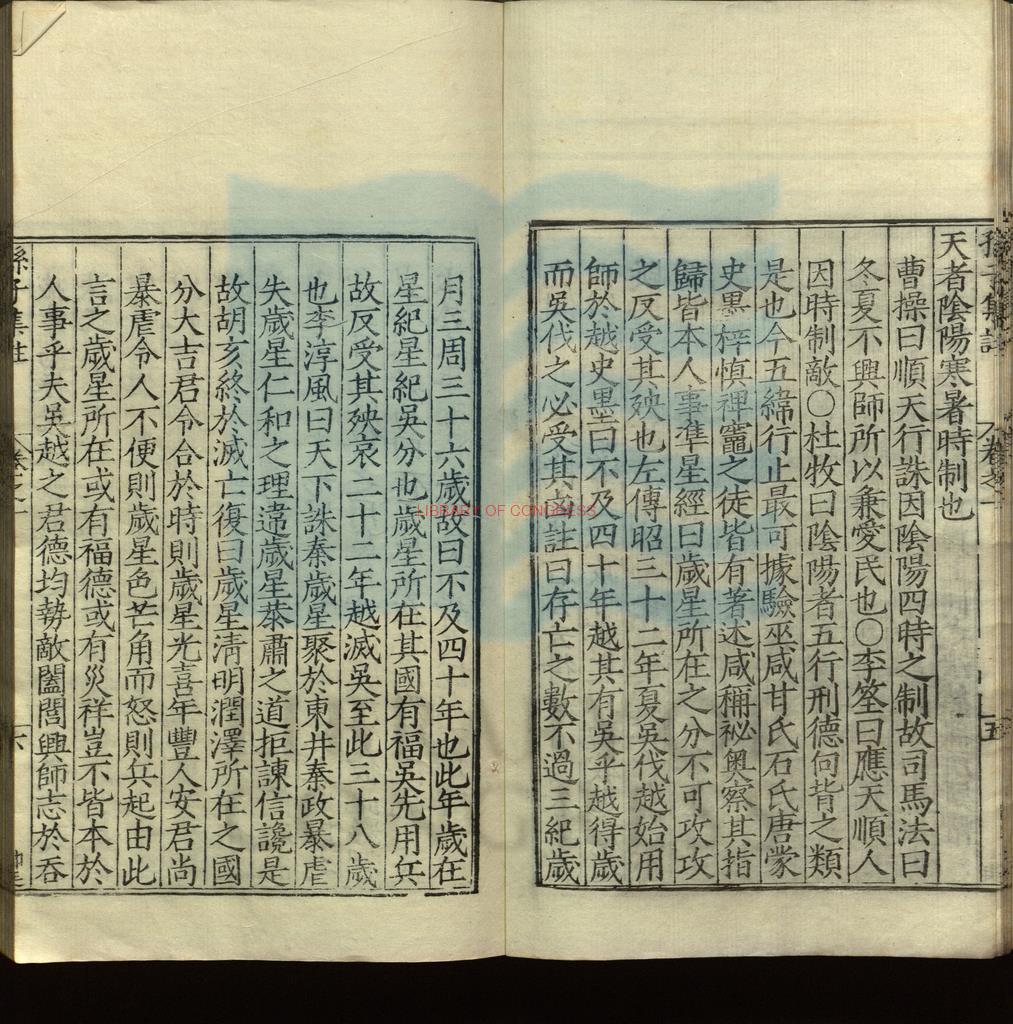 孫子集註 卷之一 五
天者陰陽寒暑時制也
曹操曰順天行誅因陰陽四時之制故司馬法曰
冬夏不興師所以兼愛民也○李筌曰應天順人
因時制敵○杜牧曰陰陽者五行刑德向背之類
是也今五緯行止最可據驗巫咸甘氏石氏唐蒙
史墨梓慎裨竈之徒皆有著述咸稱祕奧察其指
歸皆本人事準星經曰歲星所在之分不可攻攻
之反受其殃也左傳昭三十二年夏吳伐越始用
師於越史墨曰不及四十年越其有吳乎越得歲
而吳伐之必受其凶註曰存亡之數不過三紀歲
月三周三十六歲故曰不及四十年也此年歲在
星紀星紀吳分也歲星所在其國有福吳先用兵
故反受其殃哀二十二年越滅吳至此三十八歲
也李淳風曰天下誅秦歲星聚於東井秦政暴虐
失歲星仁和之理違歲星恭肅之道拒諫信讒是
故胡亥終於滅亡復曰歲星清明潤澤所在之國
分大吉君令合於時則歲星光喜年豐人安君尚
暴虐令人不便則歲星色芒角而怒則兵起由此
言之歲星所在或有福德或有災祥豈不皆本於
人事乎夫吳越之君德均勢敵闔閭興師志於吞
孫子集註 卷之一 六
LIBRARY OF CONGRESS